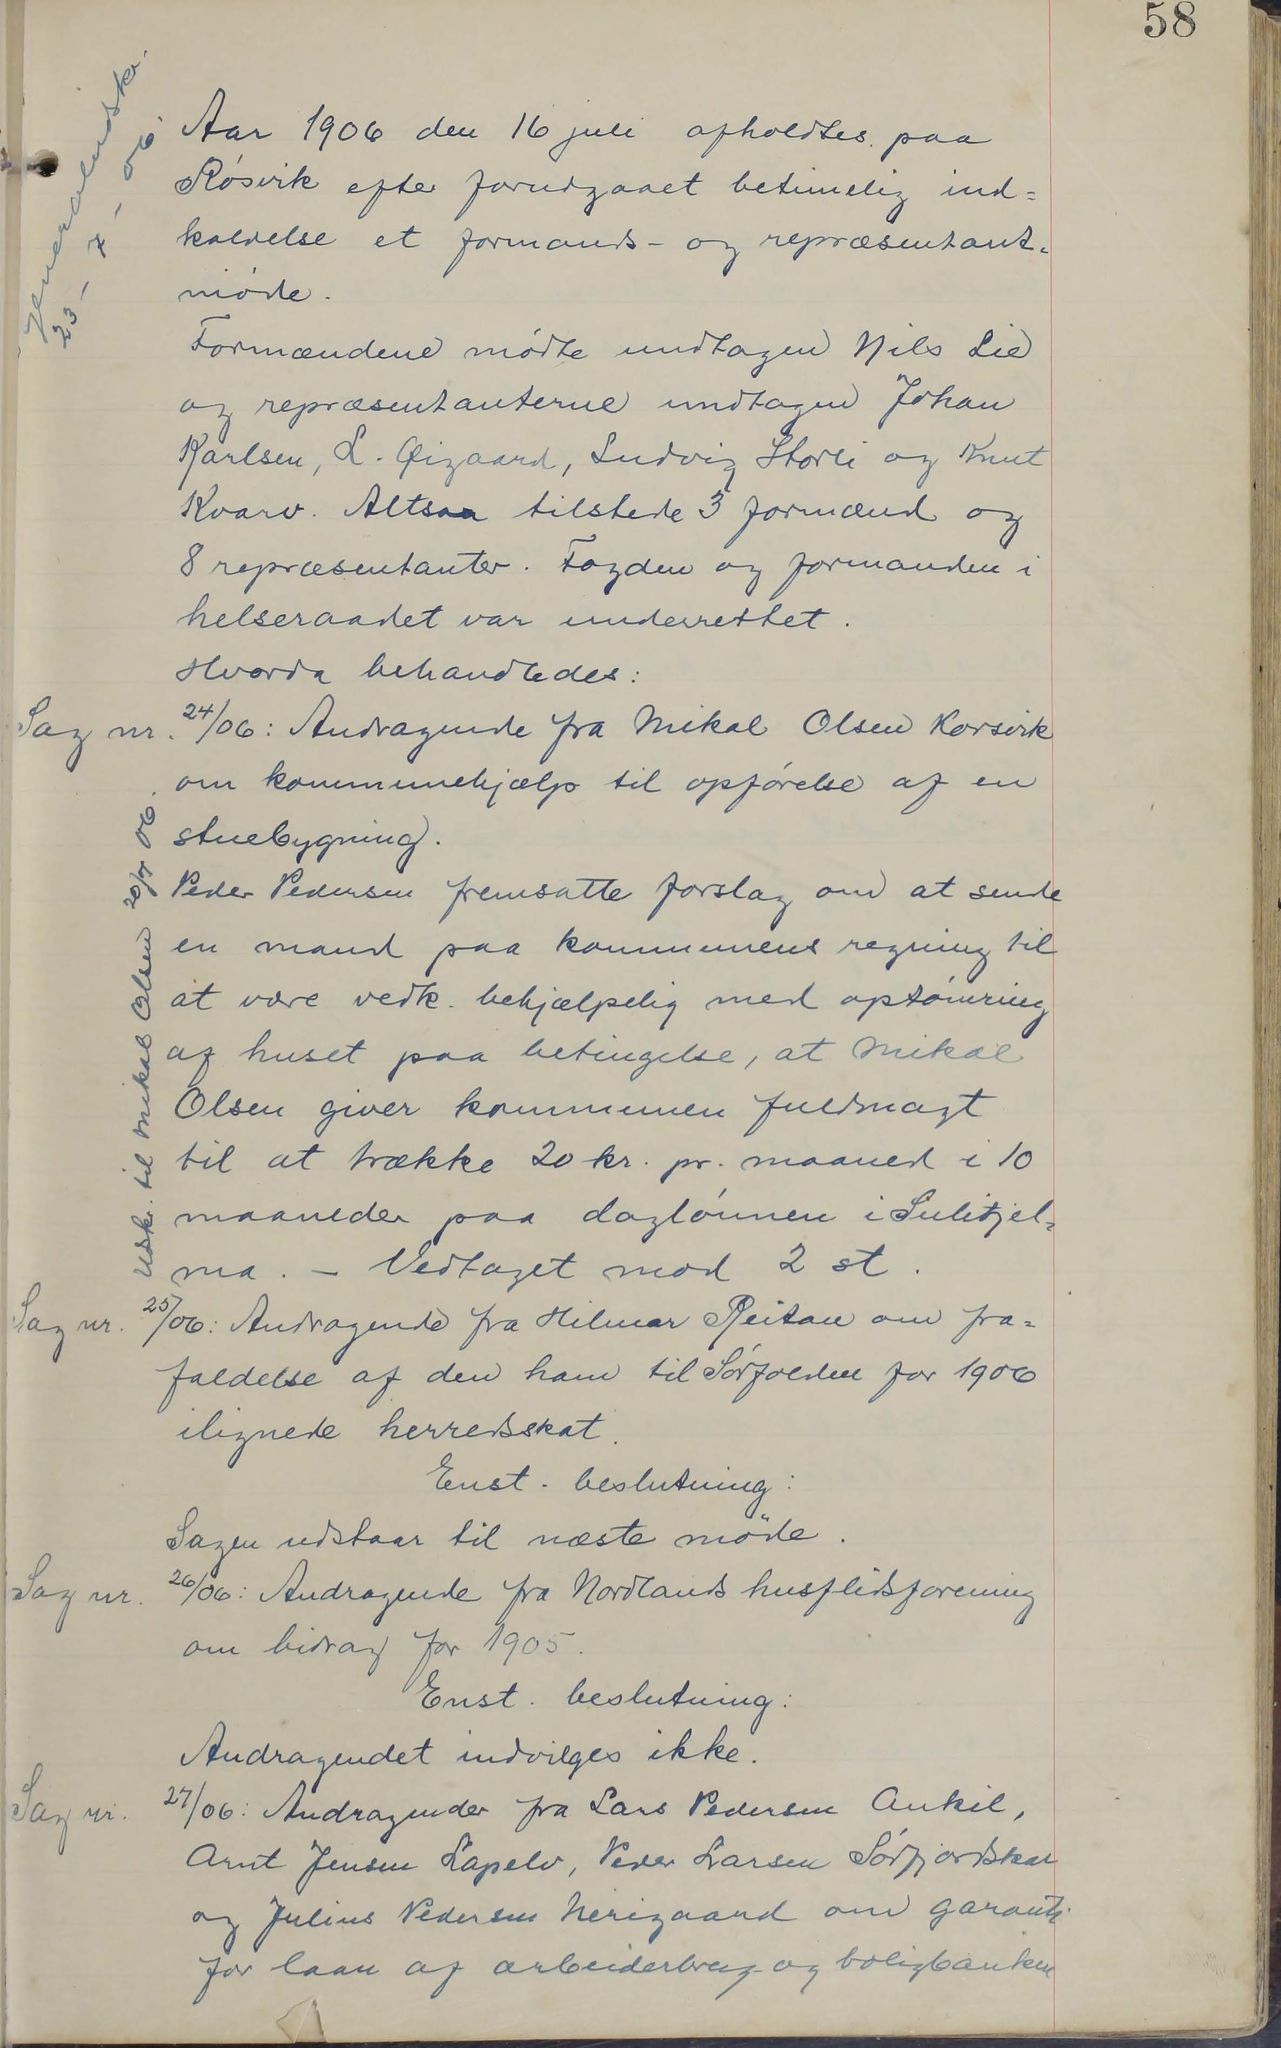 58
Generaludskr.
23-7-06
Aar 1906 den 16 juli afholdtes paa
Røsvik efter forudgaaet betimelig ind=
kaldelse et formands- og repræsentant=
møde.
Formændene mødte undtagen Nils Lie
og repræsentanterne undtagen Johan
Karlsen, L. Øigaard, Ludvig Storli og Knut
Kvarv. Altsaa tilstede 3 formænd og
8 repræsentanter. Fogden og formanden i
helseraadet var underrettet.
Hvorda behandledes:
Sag nr. 24/06: Andragende fra Mikal Olsen Korsvik
om kommunehjælp til opførelse af en
stuebygning.
Peder Pedersen fremsatte forslag om at sende
en mand paa kommunens regning til
at være vedk. behjælpelig med optømring
af huset paa betingelse, at Mikal
Olsen giver kommunen fuldmagt
til at trække 20 kr. pr. maaned i 10
maaneder paa daglønnen i Sulitjel=
ma. - Vedtaget mod 2 st.
Udskr. til Mikal Olsen 20/7 06.
Sag nr. 25/06: Andragende fra Hilmar Reitan om fra=
faldelse af den ham til Sørfolden for 1906
ilignede herredsskat.
Enst. beslutning:
Sagen udstaar til næste møde.
Sag nr. 26/06: Andragende fra Nordlands husflidsforening
om bidrag for 1905.
Enst. beslutning:
Andragendet indvilges ikke.
Sag nr. 27/06: Andragender fra Lars Pedersen Ankil,
Arnt Jensen Lapelv, Peder Larsen Sørfjordskar
og Julius Pedersen Nerigaard om garanti
for laan af arbeiderbrug og boligbanken